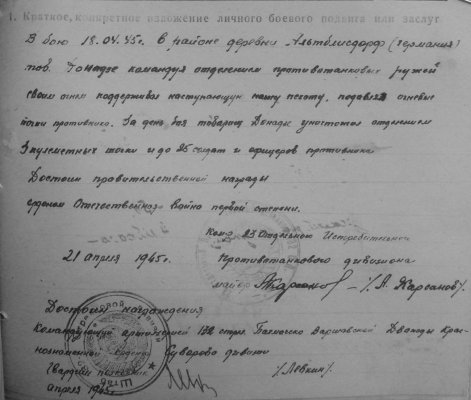 1. Краткое, конкретное изложение личного боевого подвига или заслуг
В бою 18.04.45г. в районе деревни Альтблисдорф (Германия)
тов. командуя отделением противотанковых ружей
своим огнем поддерживал наступающую нашу пехоту, подавляя огневые
точки противника. За день боя товарищ уничтожил отделением
3 пулеметных точки и до 25 солдат и офицеров противника
Достоин правительственной награды
орденом Отечественной Война первой степени.
Отдельного Истребительного
21 апреля 1945г. Противотанкового дивизиона
майор /А. Карсанов/
Достоин награждения
Командующий артиллерией стрел. Варшавской Дважды Крас-
нознаменной Ордена Суворова дивизии
Гвардии полковник /Левкин/
апреля 1945г.